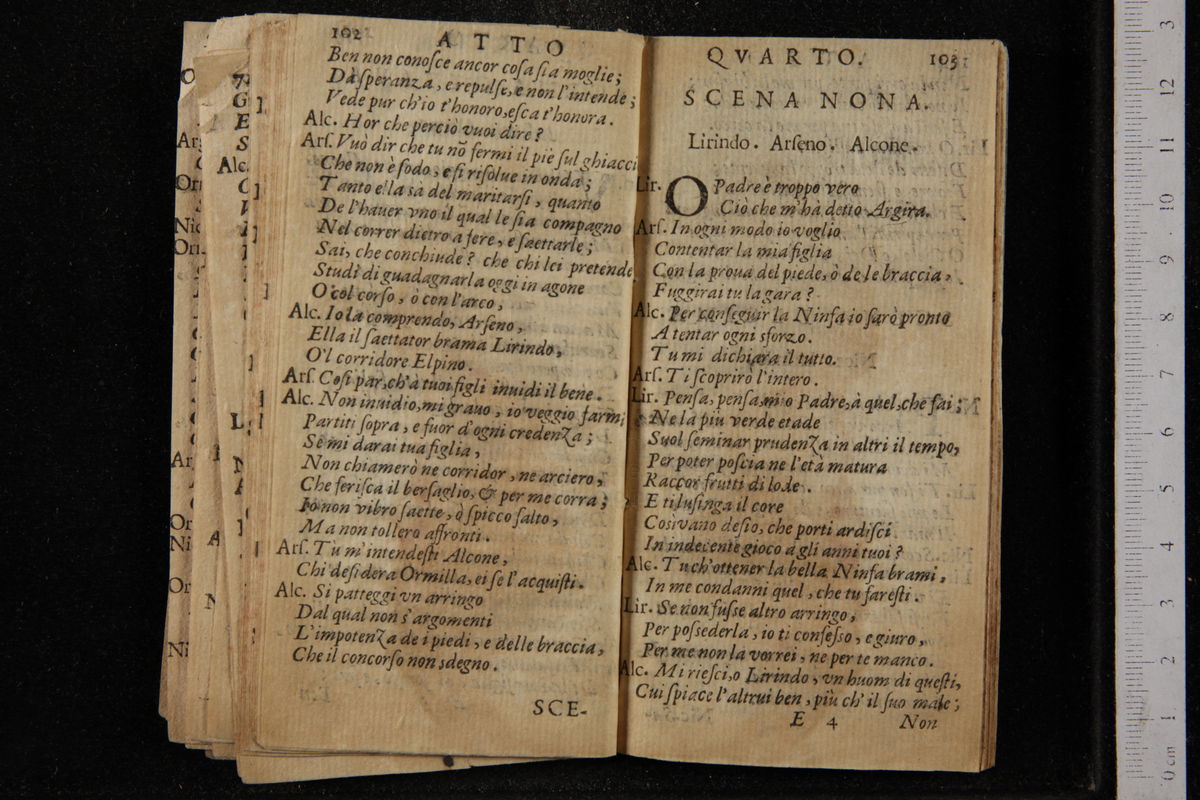 102 ATTO
Ben non conoſce ancor coſa ſia moglie;
Dà ſperanza, e repulſe, e non l'intende;
Vede pur ch'io t'honoro, eſca t'honora.
Alc. Hor che perciò vuoi dire?
Arſ. Vuo dir che tu nõ fermi il piè ſul ghiacci
Che non è ſodo, e ſi riſolue in onda;
Tanto ella sà del maritarſi, quanto
De l'hauer vno il qual le ſia compagno
Nel correr dietro a fere, e ſaettarle;
Sai, che conchiude? che chi lei pretende
Studi di guadagnarla oggi in agone
O col corſo, ò con l'arco,
Alc. Io la comprendo, Arſeno,
Ella il ſaettator brama Lirindo,
O'l corridore Elpino.
Arſ. Coſi par, ch'à tuoi figli inuidi il bene.
Alc. Non inuidio, mi grauo, io veggio farmi
Partiti ſopra, e fuor d'ogni credenza;
Se mi darai tua figlia,
Non chiamerò ne corridor, ne arciero,
Che feriſca il berſaglio, & per me corra;
Io non vibro ſaette, ò ſpicco ſalto,
Ma non tollero affronti.
Arſ. Tu m'intendeſti Alcone,
Chi deſidera Ormilla, ei ſe l'acquiſti.
Alc. Si patteggi vn arringo
Dal qual non s'argomenti
L'impotenza de i piedi, e delle braccia,
Che il concorſo non sdegno.
SCE-
QVARTO. 103
SCENA NONA.
Lirindo. Arſeno. Alcone.
Lir. O Padre è troppo vero
Ciò che m'hà detto Argira.
Arſ. In ogni modo io voglio
Contentar la mia figlia
Con la proua del piede, ò de le braccia,
Fuggirai tu la gara?
Alc. Per conſeguir la Ninfa io ſarò pronto
A tentar ogni sforzo.
Tu mi dichiara il tutto.
Arſ. Ti ſcoprirò l'intero.
Lir. Penſa, penſa, mio Padre, à quel, che fai;
Ne la più verde etade
Suol ſeminar prudenza in altri il tempo,
Per poter poſcia ne l'età matura
Raccor frutti di lode.
E ti luſinga il core
Così vano deſio, che porti ardiſci
In indecente gioco a gli anni tuoi?
Alc. Tu ch'ottener la bella Ninfa brami,
In me condanni quel, che tu fareſti.
Lir. Se non fuſse altro arringo,
Per poſsederla, io ti confeſso, e giuro,
Per me non la vorrei, ne per te manco.
Alc. Mi rieſci, o Lirindo, vn huom di queſti,
Cui ſpiace l'altrui ben, più ch'il ſuo male;
E 4 Non